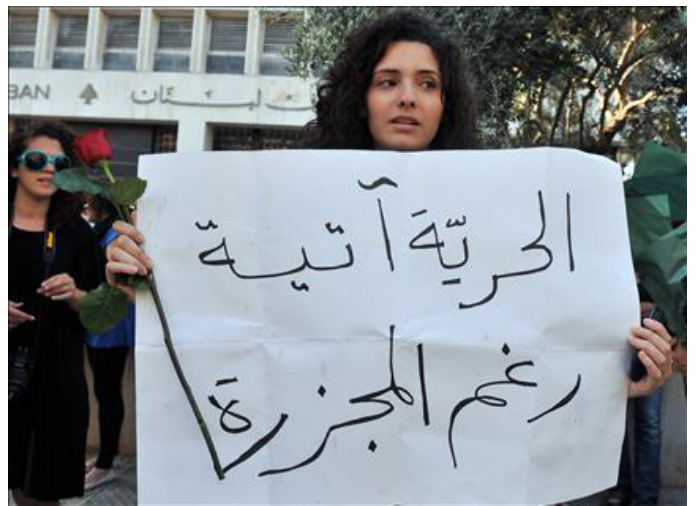 BAN لبنان
الحريّة آتية
رغم المجزرة